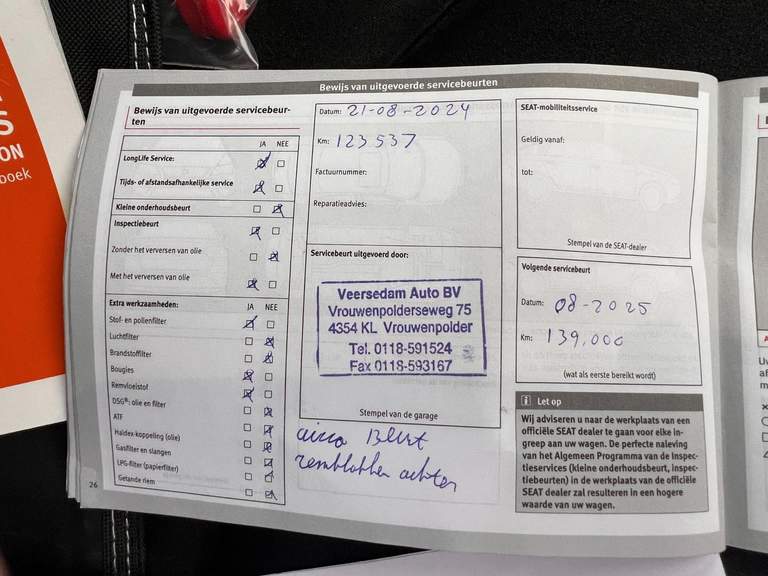 S
ON
oek
Bewijs van uitgevoerde servicebeurten
Bewijs van uitgevoerde servicebeur-
ten
JA NEE
LongLife Service:
Tijds- of afstandsafhankelijke service
Kleine onderhoudsbeurt
Inspectiebeurt
Zonder het verversen van olie
Met het verversen van olie
Extra werkzaamheden: JA NEE
Stof- en pollenfilter
Luchtfilter
Brandstoffilter
Bougies
Remvloeistof
DSG®: olie en filter
ATF
Haldex-koppeling (olie)
Gasfilter en slangen
LPG-filter (papierfilter)
Getande riem
26
Datum: 21-08-2024
Km: 123537
Factuurnummer:
Reparatieadvies:
Servicebeurt uitgevoerd door:
Veersedam Auto BV
Vrouwenpolderseweg 75
4354 KL Vrouwenpolder
Tel. 0118-591524
Fax 0118-593167
Stempel van de garage
airco Beurt
remblokken achter
SEAT-mobiliteitsservice
Geldig vanaf:
tot:
Stempel van de SEAT-dealer
Volgende servicebeurt
Datum: 08-2025
Km: 139,000
(wat als eerste bereikt wordt)
i Let op
Wij adviseren u naar de werkplaats van een
officiële SEAT dealer te gaan voor elke in-
greep aan uw wagen. De perfecte naleving
van het Algemeen Programma van de Inspec-
tieservices (kleine onderhoudsbeurt, inspec-
tiebeurten) in de werkplaats van de officiële
SEAT dealer zal resulteren in een hogere
waarde van uw wagen.